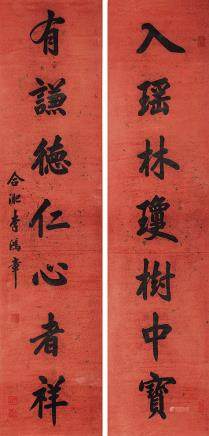 入瑶林瓊樹中寳
有謙德仁心者祥
合淝李鴻章